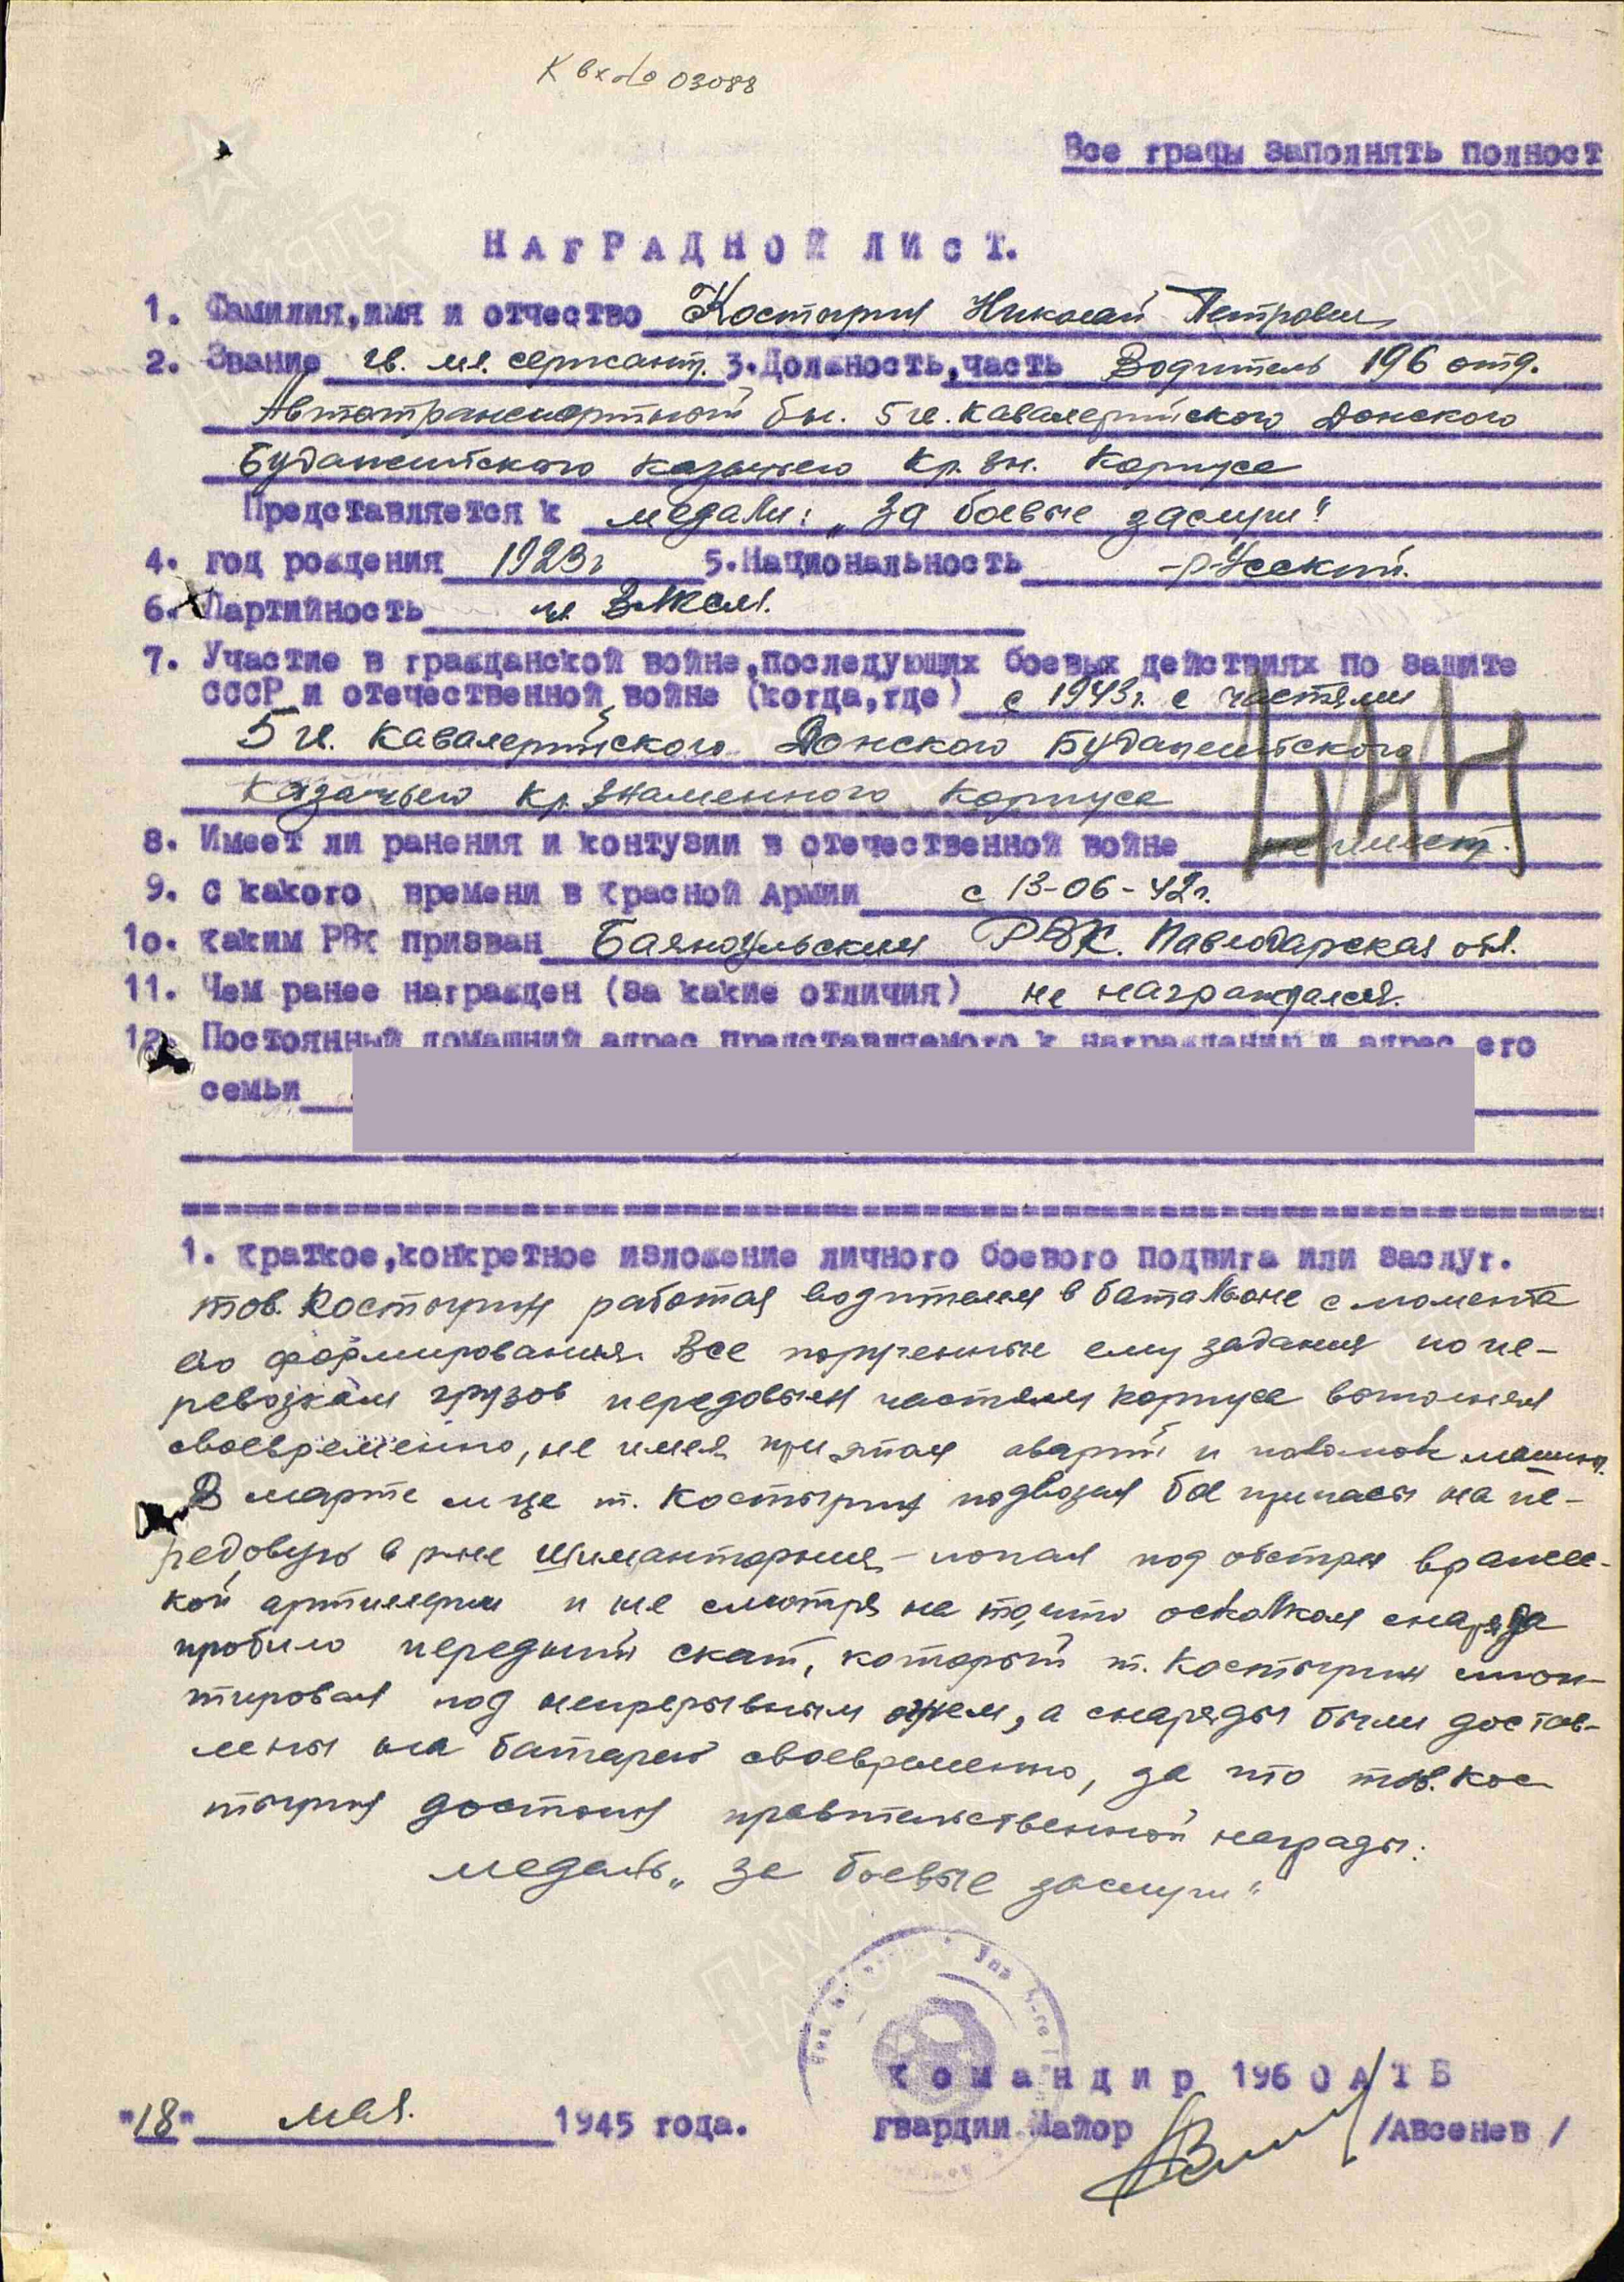 К вх № 03088
Все графы заполнять полност
НАГРАДНОЙ ЛИСТ.
1. Фамилия,имя и отчество Костырин Николай Петрович
2. Звание гв. мл. сержант. 3.Должность,часть Водитель 196 отд.
Автотранспортный бн. 5 гв. Кавалерийского Донского
Будапештского казачьего Кр. Зн. Корпуса
Представляется к медали: „За боевые заслуги"
4. год рождения 1923г 5.Национальность русский.
6. Партийность чл. ВЛКСМ.
7. Участие в гражданской войне,последующих боевых действиях по защите
СССР и отечественной войне (когда,где) с 1943г. с частями
5 гв. Кавалерийского Донского Будапештского
Казачьего Кр. Знаменного Корпуса
8. Имеет ли ранения и контузии в отечественной войне не имеет.
9. С какого времени в Красной Армии с 13-06-42г.
10. Каким РВК призван Баянаульским РВК. Павлодарская обл.
11. Чем ранее награжден (за какие отличия) не награждался.
12. Постоянный домашний адрес представляемого к награждению и адрес его
семьи
1. Краткое,конкретное изложение личного боевого подвига или заслуг.
тов. Костырин работая водителем в батальоне с момента
его формирования. Все порученные ему задания по пе-
ревозкам грузов передовым частям корпуса выполнял
своевременно, не имея при этом аварий и поломок машины.
В марте м-це т. Костырин подвозил боеприпасы на пе-
редовую в р-не Шимонторния - попал под обстрел вражес-
кой артиллерии и не смотря на то, что осколком снаряда
пробило передний скат, который т. Костырин смон-
тировал под непрерывным огнем, а снаряды были достав-
лены на батарею своевременно, за что тов. Кос-
тырин достоин правительственной награды:
медаль „За боевые заслуги"
Командир 196 ОАТБ
"18" мая. 1945 года. гвардии Майор /Авсенев/